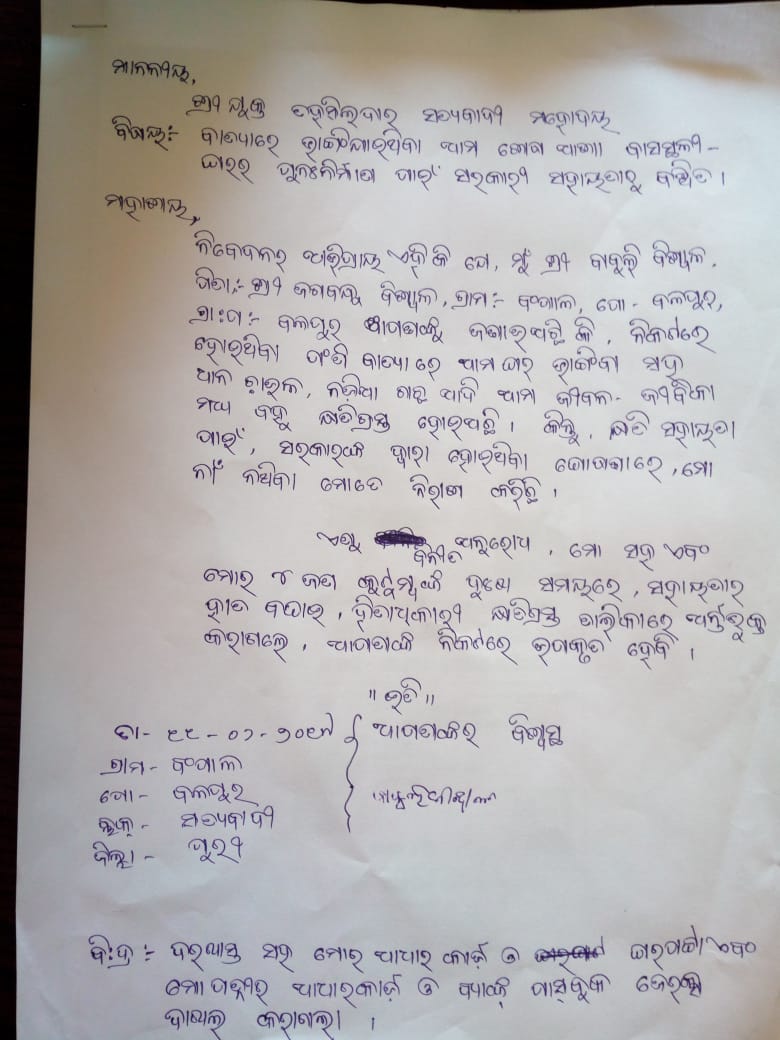 ମାନନୀୟ,
ଶ୍ରୀଯୁକ୍ତ ତହସିଲଦାର ସତ୍ୟବାଦୀ ମହୋଦୟ
ବିଷୟ:- ବାତ୍ୟାରେ ଭାଙ୍ଗିଯାଇଥିବା ଆମ ଶେଷ ଆଶା ବାସସ୍ଥଳୀ -
ଘରର ପୁନଃନିର୍ମାଣ ପାଇଁ ସରକାରୀ ସହାୟତାରୁ ବଞ୍ଚିତ ।
ମହାଶୟ,
ନିବେଦନର ଅଭିପ୍ରାୟ ଏହି କି ଯେ, ମୁଁ ଶ୍ରୀ ବାବୁଲି ବିଶ୍ୱାଳ,
ପିତା:- ଶ୍ରୀ ଜଗବନ୍ଧୁ ବିଶ୍ୱାଳ, ଗ୍ରାମ:- ବଂଗାଳ, ପୋ- ବଳପୁର,
ଗ୍ରା:ପ:- ବଳପୁର ଆପଣଙ୍କୁ ଜଣାଉଅଛି କି, ନିକଟରେ
ହୋଇଥିବା ଫଂନି ବାତ୍ୟାରେ ଆମ ଘର ଭାଙ୍ଗିବା ସହ
ଧାନ ଚାଉଳ, ନଡ଼ିଆ ଗଛ ଆଦି ଆମ ଜୀବନ- ଜୀବିକା
ମଧ୍ୟ ବହୁ କ୍ଷତିଗ୍ରସ୍ତ ହୋଇଅଛି । କିନ୍ତୁ, କ୍ଷତି ସହାୟତା
ପାଇଁ, ସରକାରଙ୍କ ଦ୍ୱାରା ହୋଇଥିବା ଘୋଷଣାରେ, ମୋ
ନାଁ ନଥିବା ମୋତେ ନିରାଶ କରିଛି ।
ଏଣୁ ବିନୀତ ଅନୁରୋଧ, ମୋ ସହ ଏବଂ
ମୋର ୪ ଜଣ କୁଟୁମ୍ବଙ୍କ ଦୁଃଖ ସମୟରେ, ସହାୟତାର
ହାତ ବଢାଇ, ହିତାଧିକାରୀ କ୍ଷତିଗ୍ରସ୍ତ ତାଲିକାରେ ଅର୍ନ୍ତଭୁକ୍ତ
କରାଗଲେ, ଆପଣଙ୍କ ନିକଟରେ ଉପକୃତ ହେବି ।
॥ ଇତି ॥
ତା- ୧୧-୦୨-୨୦୧୯ ଆପଣଙ୍କର ବିଶ୍ୱସ୍ତ
ଗ୍ରାମ- ବଂଗାଳ
ପୋ- ବଳପୁର
ବ୍ଲକ୍- ସତ୍ୟବାଦୀ
ଜିଲ୍ଲା- ପୁରୀ
ବି:ଦ୍ର:- ଦରଖାସ୍ତ ସହ ମୋର ଆଧାର କାର୍ଡ଼ ଓ ଘରପଟ୍ଟା ଏବଂ
ମୋ ପତ୍ନୀର ଆଧାରକାର୍ଡ଼ ଓ ବ୍ୟାଙ୍କ୍ ପାସ୍‌ବୁକ ଜେରକ୍ସ
ଦାଖଲ କରାଗଲା ।